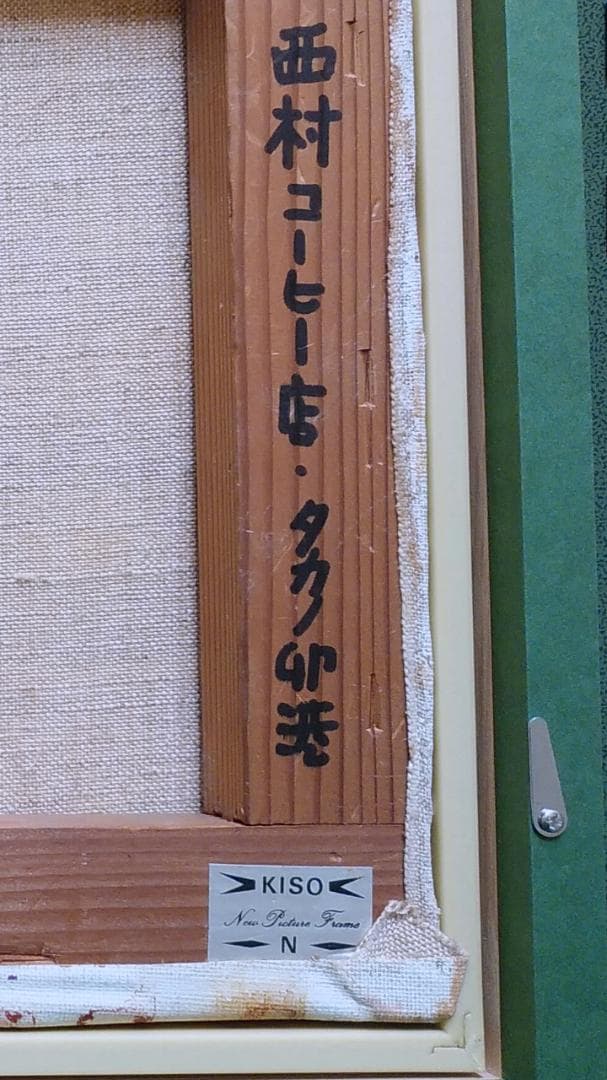 西村コーヒー店・タカノ卯港
KISO
New Picture Frame
N